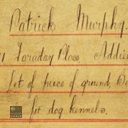 Patrick Murphy
Faraday Place, Addi
Lot of piece of ground, Ba
for dog kennels.